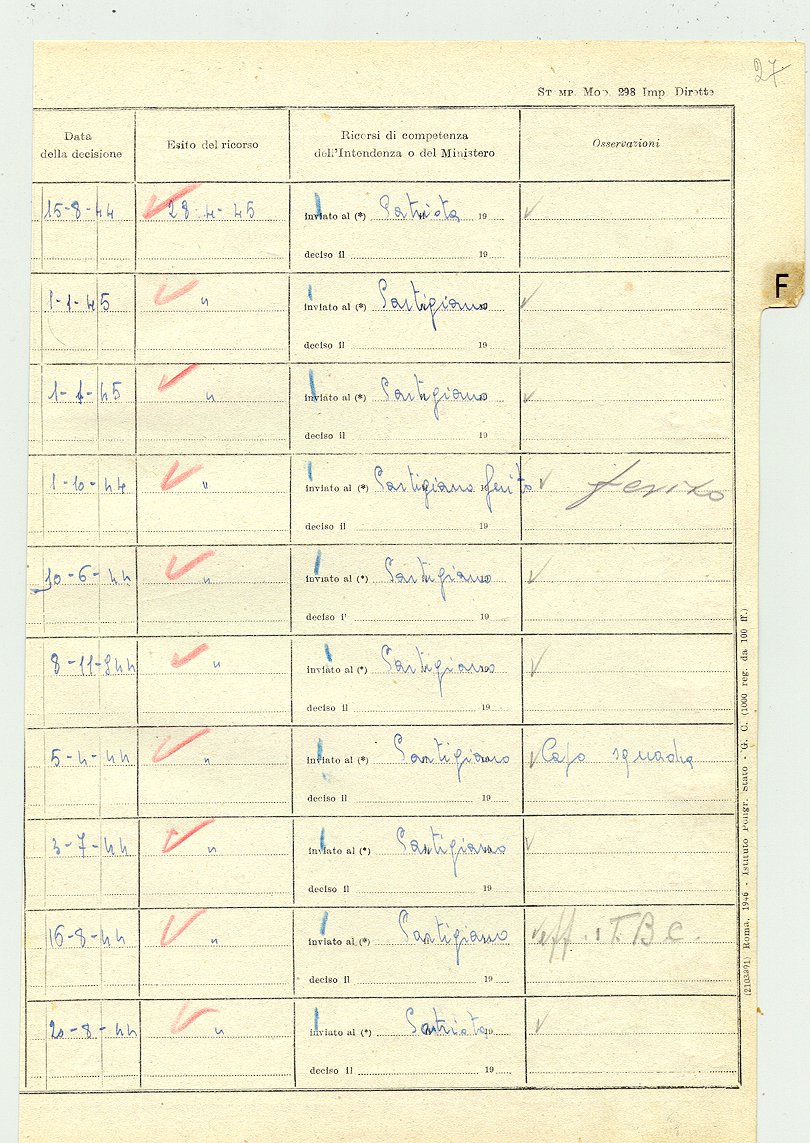 27
ST MP. MOD. 298 Imp. Dirette
Data della decisione
Esito del ricorso
Ricorsi di competenza dell'Intendenza o del Ministero
Osservazioni
15-8-44 28-4-45 inviato al (*) Patriota 19
deciso il 19
F
1-1-45 " inviato al (*) Partigiano 19
deciso il 19
1-1-45 " inviato al (*) Partigiano 19
deciso il 19
1-10-44 " inviato al (*) Partigiano ferito 19 ferito
deciso il 19
10-6-44 " inviato al (*) Partigiano 19
deciso i' 19
8-11-944 " inviato al (*) Partigiano 19
deciso il 19
5-4-44 " inviato al (*) Partigiano Capo squadra
deciso il 19
3-7-44 " inviato al (*) Partigiano 19
deciso il 19
16-8-44 " inviato al (*) Partigiano eff. T.B.C.
deciso il 19
20-8-44 " inviato al (*) Patriota 19
deciso il 19
(2103891) Roma, 1946 - Istituto Poligr. Stato - G. C. (1000 reg. da 100 ff.)